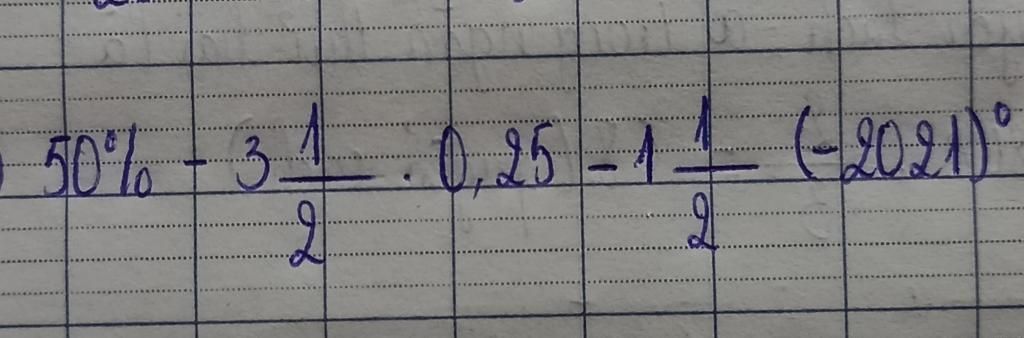 50% - 3 1/2 . 0,25 - 1 1/2 (-2021)⁰